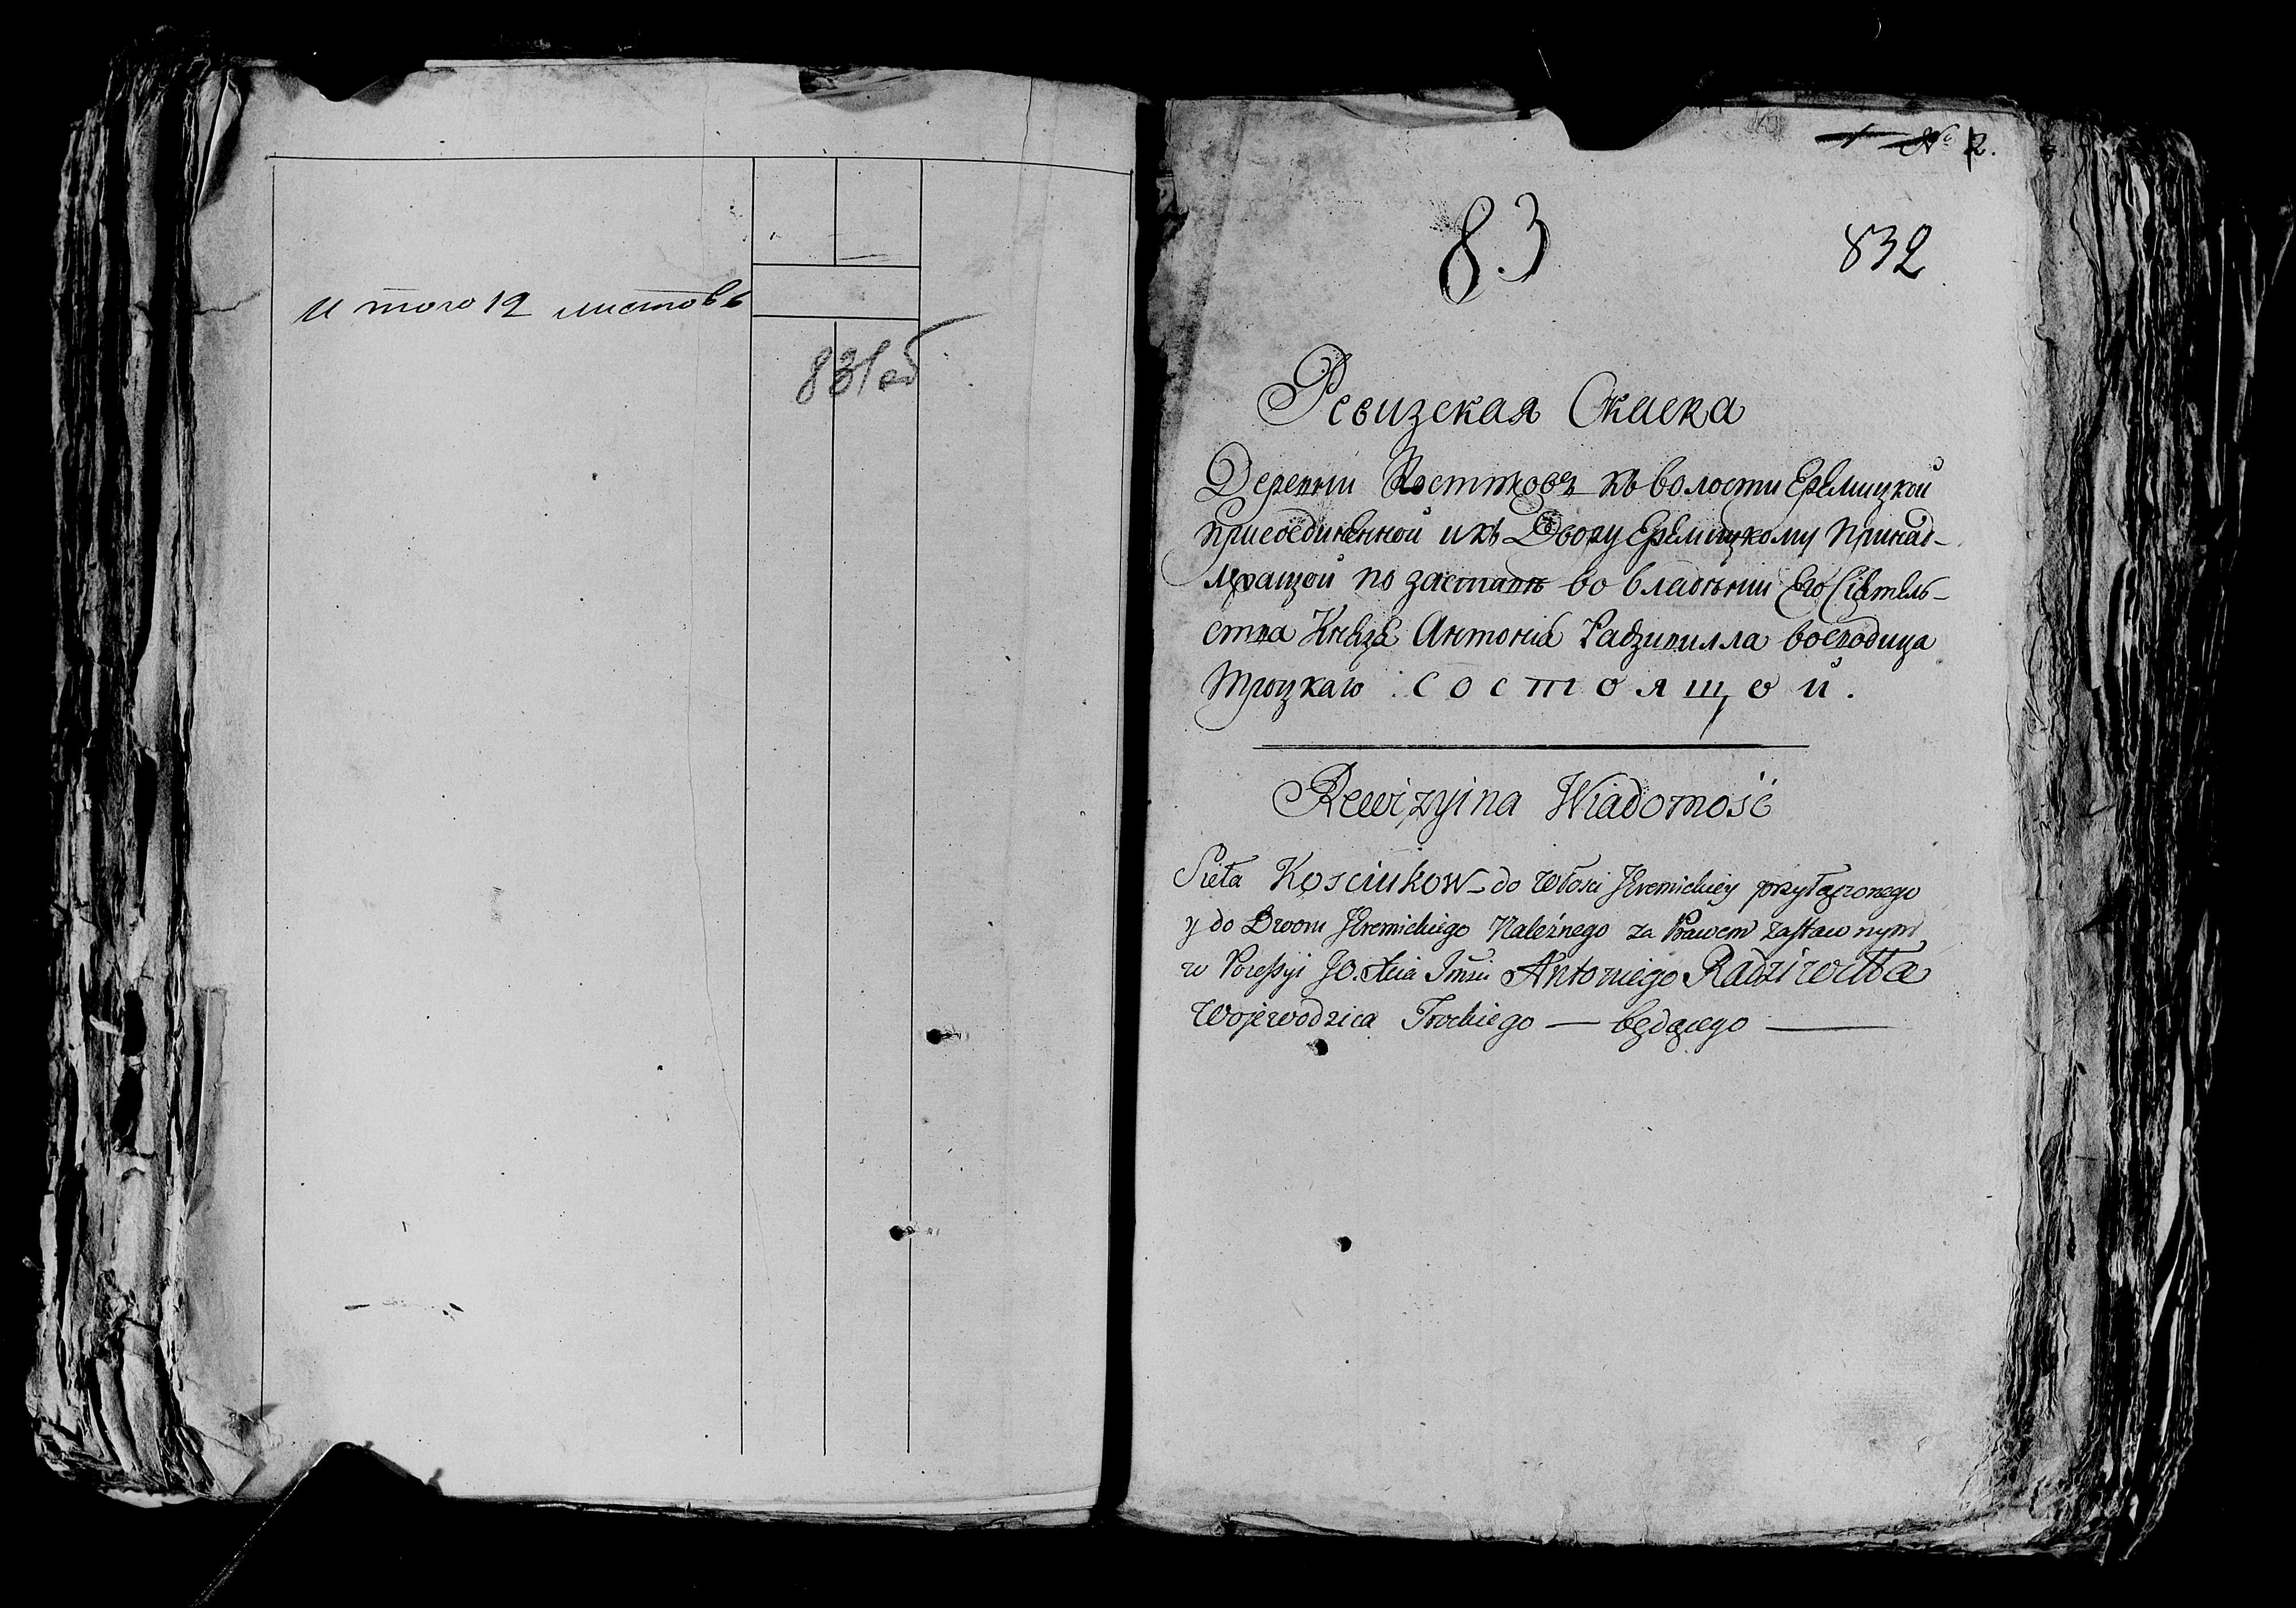 И того 12 листовъ
831об
№ 2.
83
832
Ревизская Скаска
Деревни къ волости Еремицкой
присоединенной и къ Двору Еремицкому принад-
лежащой по заставѣ во владѣнии Его Сіятель-
ства Князя Антонія Радзивилла воеводица
Троцкаго состоящой.
Rewizyina Wiadomość
Sioła Kosciukow do Włości Jeremickiey przyłączonego
y do Dworu Jeremickiego Należnego za Prawem zastawnym
w Possessyi JO. Xcia Jmści Antoniego Radziwiłła
Wojewodzica Trockiego — będącego —